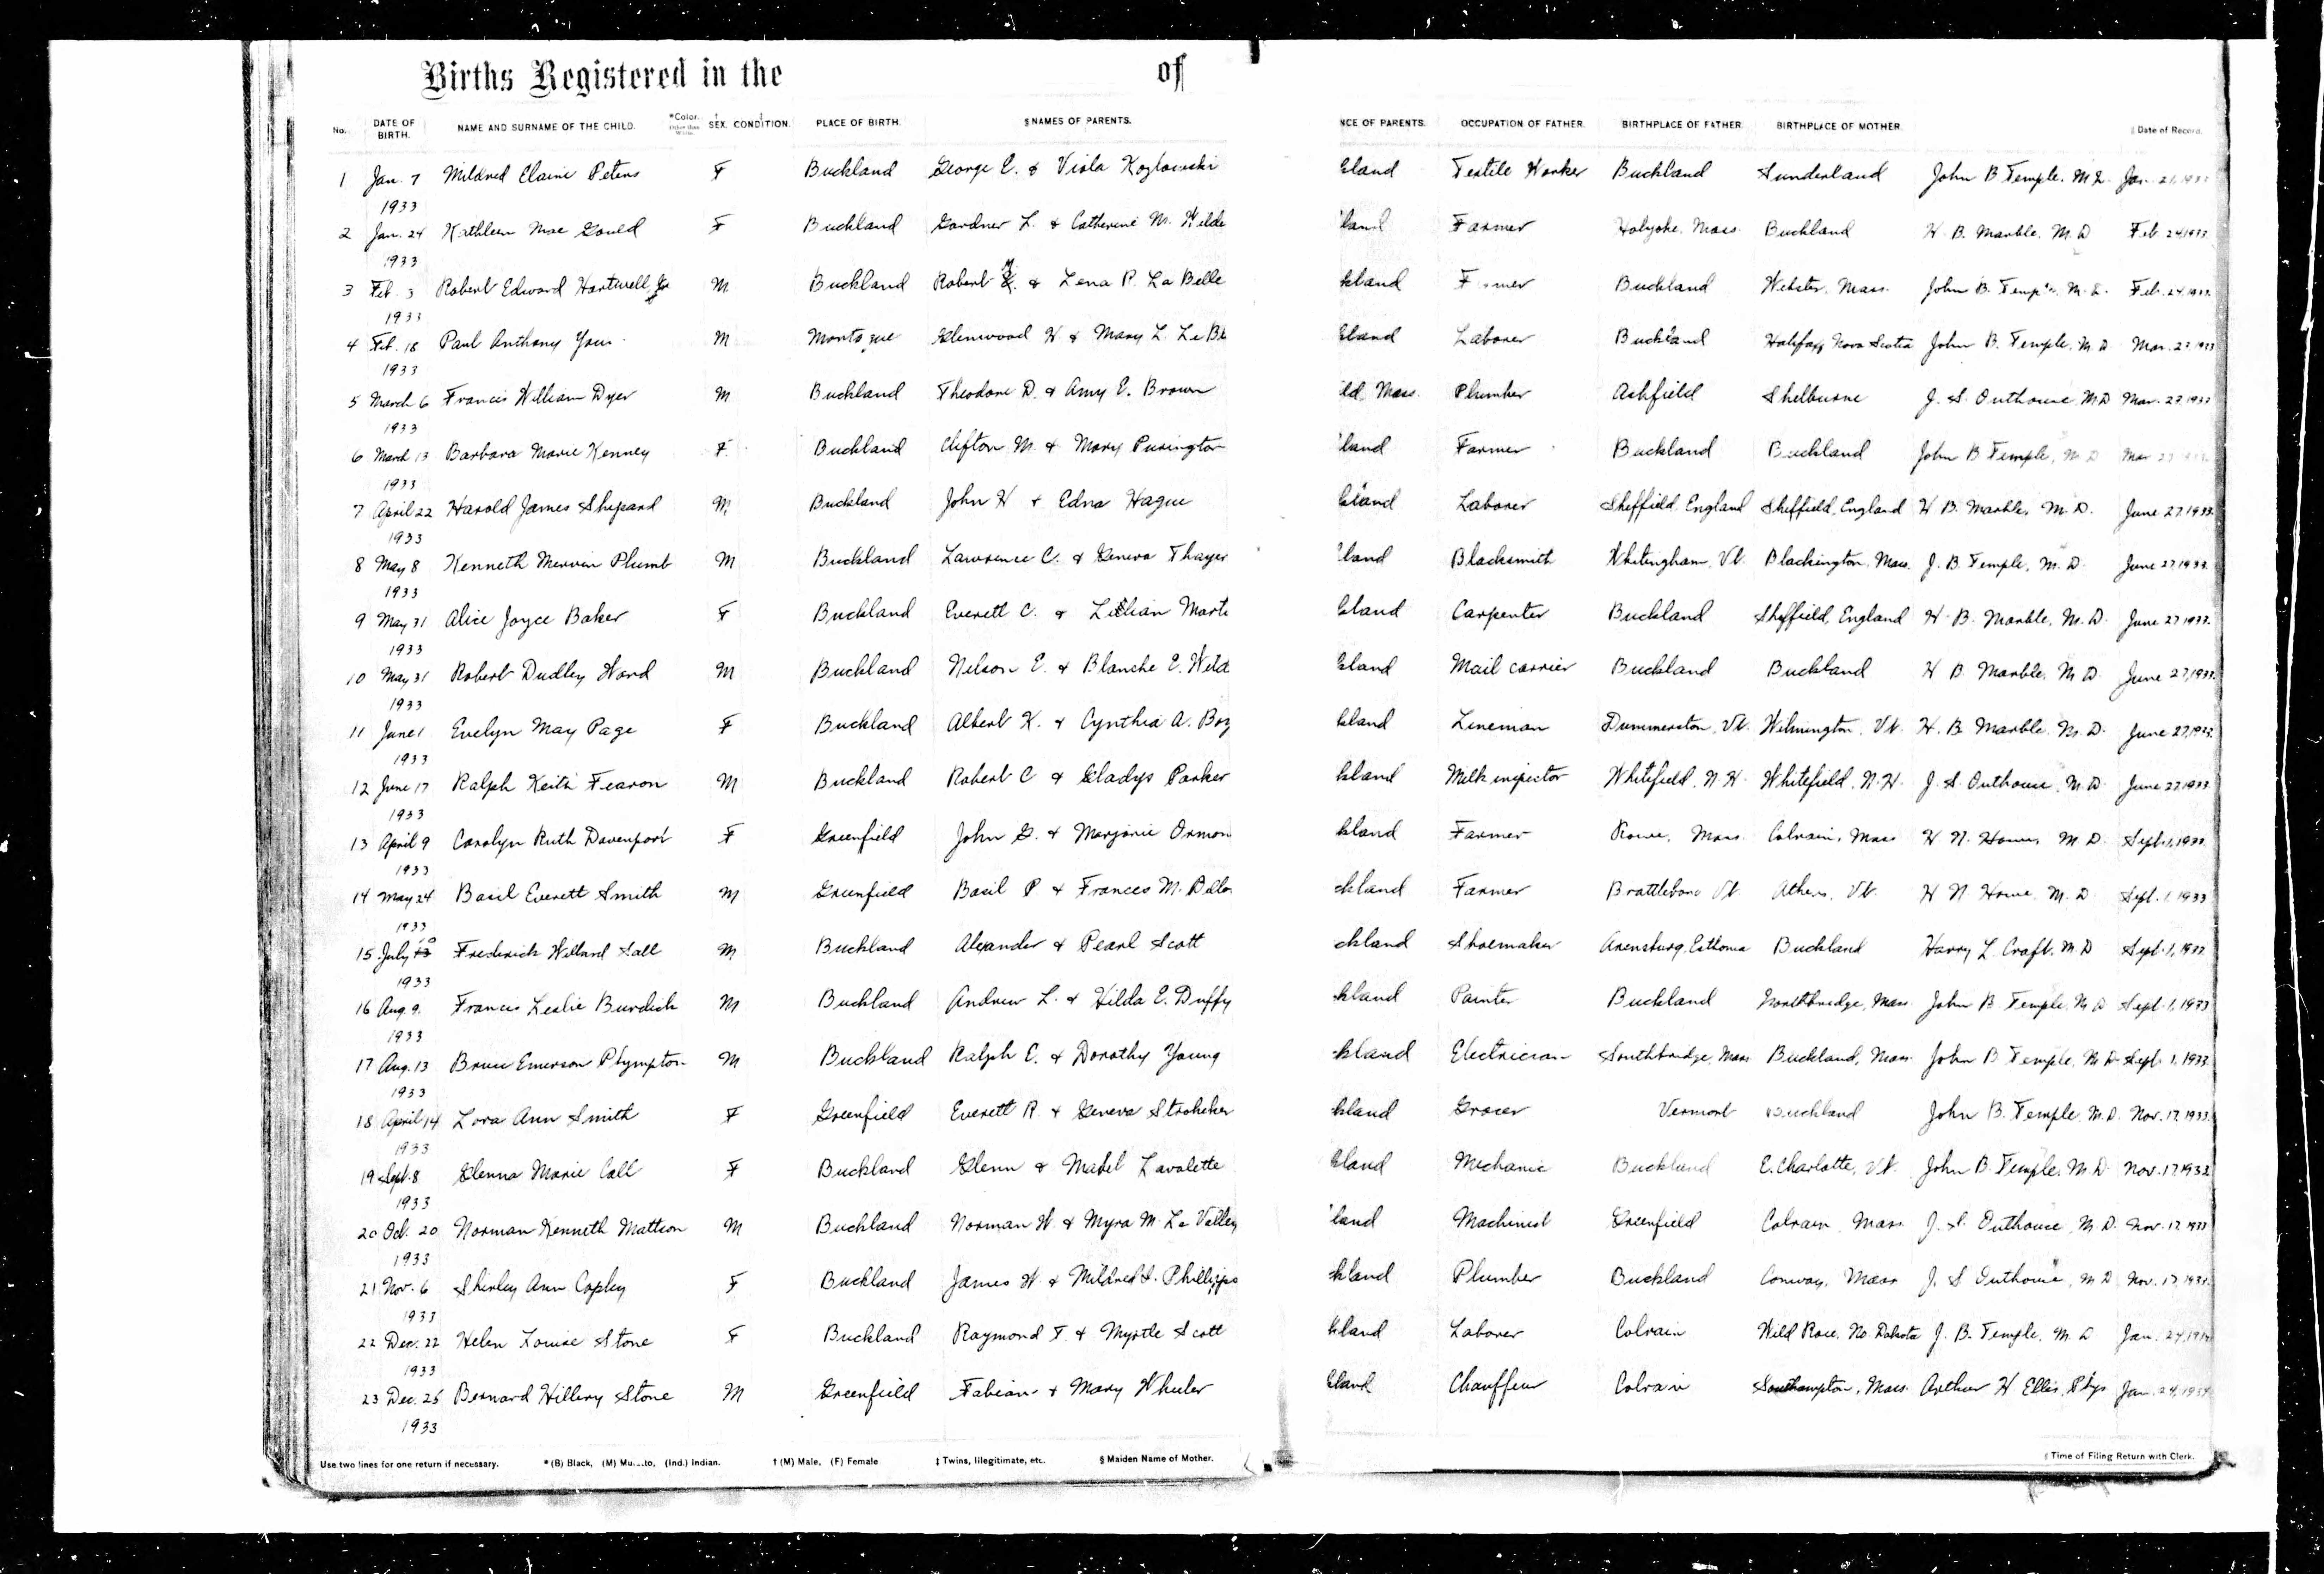 Births Registered in the of
No. DATE OF BIRTH. NAME AND SURNAME OF THE CHILD. *Color. Other than White. † SEX. ‡ CONDITION. PLACE OF BIRTH. § NAMES OF PARENTS. NCE OF PARENTS. OCCUPATION OF FATHER. BIRTHPLACE OF FATHER. BIRTHPLACE OF MOTHER. ‖ Date of Record.
1 Jan. 7 Mildred Elaine Peters F Buckland George E. & Viola Kozlowski kland Textile Worker Buckland Sunderland John B Temple, M.D. Jan. 21, 1933
1933
2 Jan. 24 Kathleen Mae Gould F Buckland Gardner L. & Catherine M. Wilde land Farmer Holyoke, Mass. Buckland H. B. Marble, M.D Feb 24, 1933
1933
3 Feb. 3 Robert Edward Hartwell, Jr M Buckland Robert & Lena R. La Belle kland F mer Buckland Webster, Mass. John B. Temp M.D. Feb. 24, 1933
1933
4 Feb. 18 Paul Anthony M Montague Glenwood H & Mary L. Le Bl kland Laborer Buckland Halifax, Nova Scotia John B. Temple, M.D Mar. 1933
1933
5 March 6 Francis William Dyer M Buckland Theodore D. & Amy E. Brown ld, Mass. Plumber Ashfield Shelburne J. S. Outhouse, M.D Mar. 27, 1933
1933
6 March 13 Barbara Marie Kenney F. Buckland Clifton M. & Mary Purington land Farmer Buckland Buckland John B Temple, M D Mar
1933
7 April 22 Harold James Shepard M Buckland John H & Edna Hague kland Laborer Sheffield, England Sheffield, England H B. Marble, M.D. June 27, 1933.
1933
8 May 8 Kenneth Mervin Plumb M Buckland Lawrence C. & Geneva Thayer land Blacksmith Whitingham, Vt. Blackington, Mass. J. B. Temple, M.D. June 27, 1933.
1933
9 May 31 Alice Joyce Baker F Buckland Everett C. & Lillian Mart kland Carpenter Buckland Sheffield, England H. B. Marble, M.D. June 27, 1933.
1933
10 May 31 Robert Dudley Ward M Buckland Nelson E. & Blanche E. Wild kland Mail carrier Buckland Buckland H B. Marble, M D. June 27, 1933.
1933
11 June 1 Evelyn May Page F Buckland Albert K. & Cynthia A. Boy kland Lineman Dummerston, Vt. Wilmington, Vt. H. B. Marble, M.D. June 27, 1933.
1933
12 June 17 Ralph Keith Fearon M Buckland Robert C & Gladys Parker kland Milk inspector Whitefield, N.H. Whitefield, N.H. J. S. Outhouse, M.D. June 27, 1933.
1933
13 April 9 Carolyn Ruth Davenport F Greenfield John G. & Marjorie Ormon kland Farmer Rowe, Mass. Colrain, Mass H N. Howe, M.D. Sept. 1, 1933.
1933
14 May 24 Basil Everett Smith M Greenfield Basil P & Frances M. ckland Farmer Brattleboro Vt. Athens, Vt. H N. Howe, M.D. Sept. 1, 1933
1933
15 July 10 Frederick Willard Sall M Buckland Alexander & Pearl Scott ckland Shoemaker Arensburg, Esthonia Buckland Harry L. Craft, M.D Sept. 1, 1933.
1933
16 Aug. 9. Francis Leslie Burdick M Buckland Andrew L. & Hilda E. Duffy kland Painter Buckland Northbridge, Mass. John B Temple, M D Sept. 1, 1933
1933
17 Aug. 13 Bruce Emerson Plympton M Buckland Ralph E. & Dorothy Young kland Electrician Southbridge, Mass Buckland, Mass. John B. Temple, M D. Sept. 1, 1933.
1933
18 April 14 Lora Ann Smith F Greenfield Everett R. & Geneva Stroheker kland Grocer Vermont Buckland John B. Temple, M.D. Nov. 17, 1933.
1933
19 Sept. 8 Glenna Marie Call F Buckland Glenn & Mabel Lavalette kland Mechanic Buckland E. Charlotte, Vt. John B. Temple, M.D. Nov. 17, 1933
1933
20 Oct. 20 Norman Kenneth Mattson M Buckland Norman W. & Myra M. La Valley land Machinist Greenfield Colrain, Mass. J. S. Outhouse, M.D. Nov. 17, 1933
1933
21 Nov. 6 Shirley Ann Copley F Buckland James W. & Mildred I. Phillips kland Plumber Buckland Conway, Mass J. S Outhouse, M D Nov. 17, 1933.
1933
22 Dec. 22 Helen Louise Stone F Buckland Raymond F. & Myrtle Scott kland Laborer Colrain Wild Rose, No. Dakota J. B. Temple, M.D Jan. 24, 1934
1933
23 Dec. 25 Bernard Hillery Stone M Greenfield Fabian & Mary Wheeler kland Chauffeur Colrain Southampton, Mass. Arthur H Ellis, Phys Jan. 24, 1934
1933
Use two lines for one return if necessary. *(B) Black, (M) Mu...to, (Ind.) Indian. †(M) Male, (F) Female ‡ Twins, Illegitimate, etc. § Maiden Name of Mother. ‖ Time of Filing Return with Clerk.